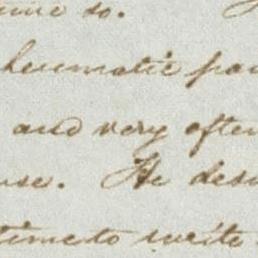 so.
heumatic pa
and very often
use. He des
time to write